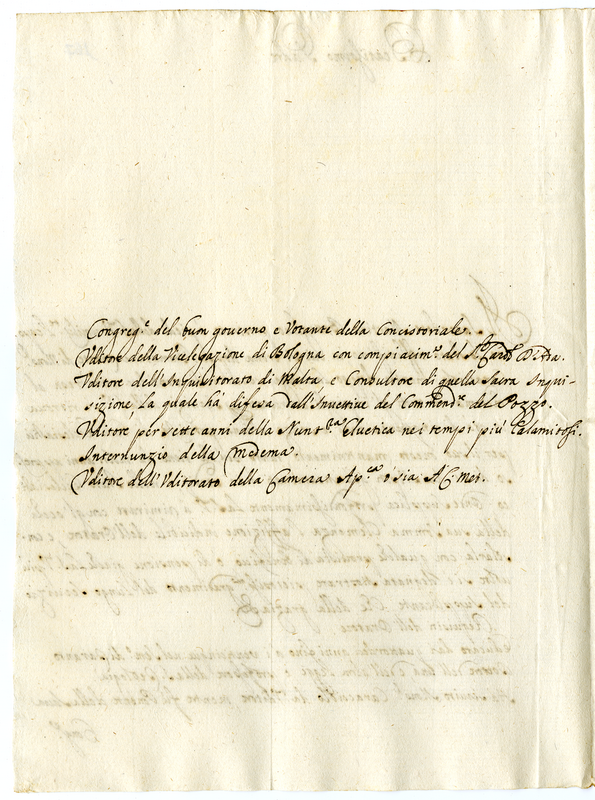 Congreg.e del buon governo e Votante della Concistoriale.
Vditore della Vicelegazione di Bologna con compiacim.to del S.r Card.l D'Adda.
Vditore dell'Inquisitorato di Malta, e Consultore di quella Sacra Inqui-
sizione, la quale hà difesa dall'Invettive del Commend.re del Pozzo.
Vditore per sette anni della Nunt.ra Eluetica nei tempi più Calamitosi.
Internunzio della Medema.
Vditore dell'Vditorato della Camera Ap.ca o sia A.C. Met.